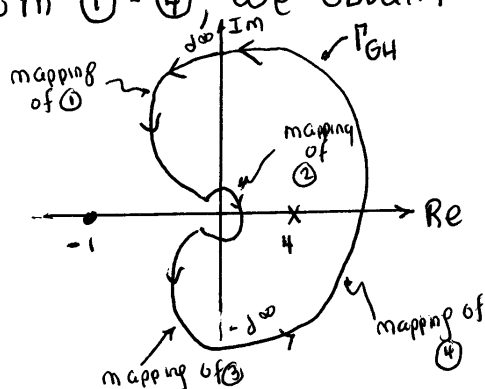 om ① - ④, we obtain
j∞ Im
Γ_GH
mapping
of ①
mapping
of
②
Re
-1
4
-j∞
mapping of
④
mapping of ③